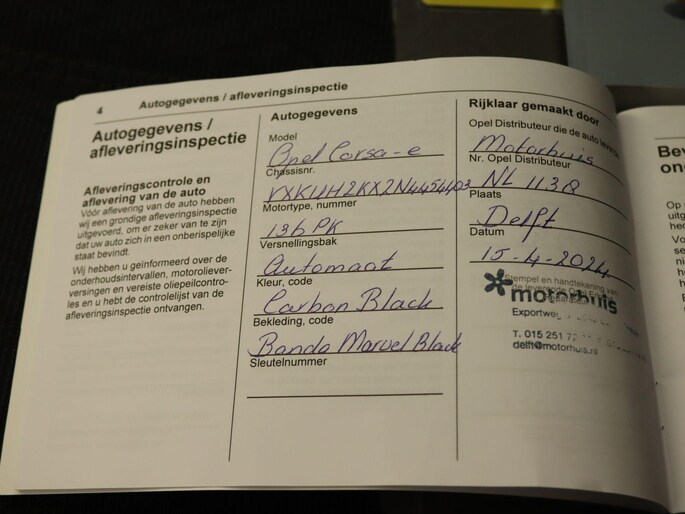 4
Autogegevens / afleveringsinspectie
Autogegevens /
afleveringsinspectie
Afleveringscontrole en
aflevering van de auto
Vóór aflevering van de auto hebben
wij een grondige afleveringsinspectie
uitgevoerd, om er zeker van te zijn
dat uw auto zich in een onberispelijke
staat bevindt.
Wij hebben u geïnformeerd over de
onderhoudsintervallen, motoroliever-
versingen en vereiste oliepeilcontro-
les en u hebt de controlelijst van de
afleveringsinspectie ontvangen.
Autogegevens
Model
Opel Corsa-e
Chassisnr.
VXKUHZKX2N4454403
Motortype, nummer
136 PK
Versnellingsbak
Automaat
Kleur, code
Carbon Black
Bekleding, code
Banda Marvel Black
Sleutelnummer
Rijklaar gemaakt door
Opel Distributeur die de auto
Motorhuis
Nr. Opel Distributeur
NL 113Q
Plaats
Delft
Datum
15-4-2024
Stempel en handtekening van
motorhuis
T. 015 251
delft@motorhuis.nl
Be
on
Op